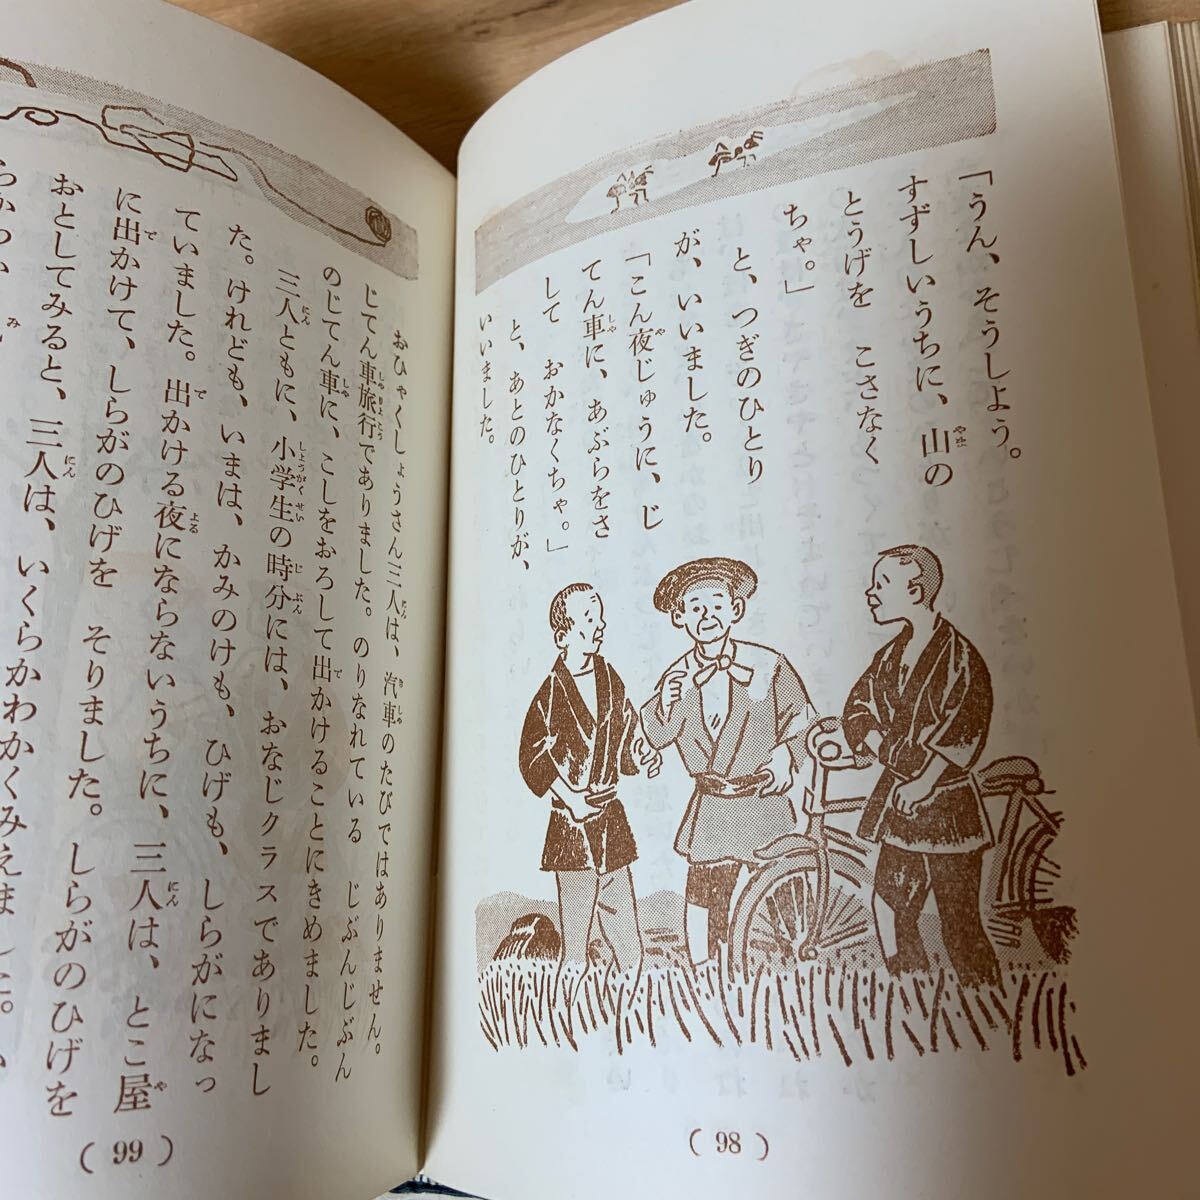 「うん、そうしよう。
すずしいうちに、山の
とうげを　こさなく
ちゃ。」
と、つぎのひとり
が、いいました。
「こん夜じゅうに、じ
てん車に、あぶらをさ
して　おかなくちゃ。」
と、あとのひとりが、
いいました。
(98)
おひゃくしょうさん三人は、汽車のたびではありません。
じてん車旅行でありました。のりなれている　じぶんじぶん
のじてん車に、こしをおろして出かけることにきめました。
三人ともに、小学生の時分には、おなじクラスでありまし
た。けれども、いまは、かみのけも、ひげも、しらがになっ
ていました。出かける夜にならないうちに、三人は、とこ屋
に出かけて、しらがのひげを　そりました。しらがのひげを
おとしてみると、三人は、いくらかわかくみえました。
(99)